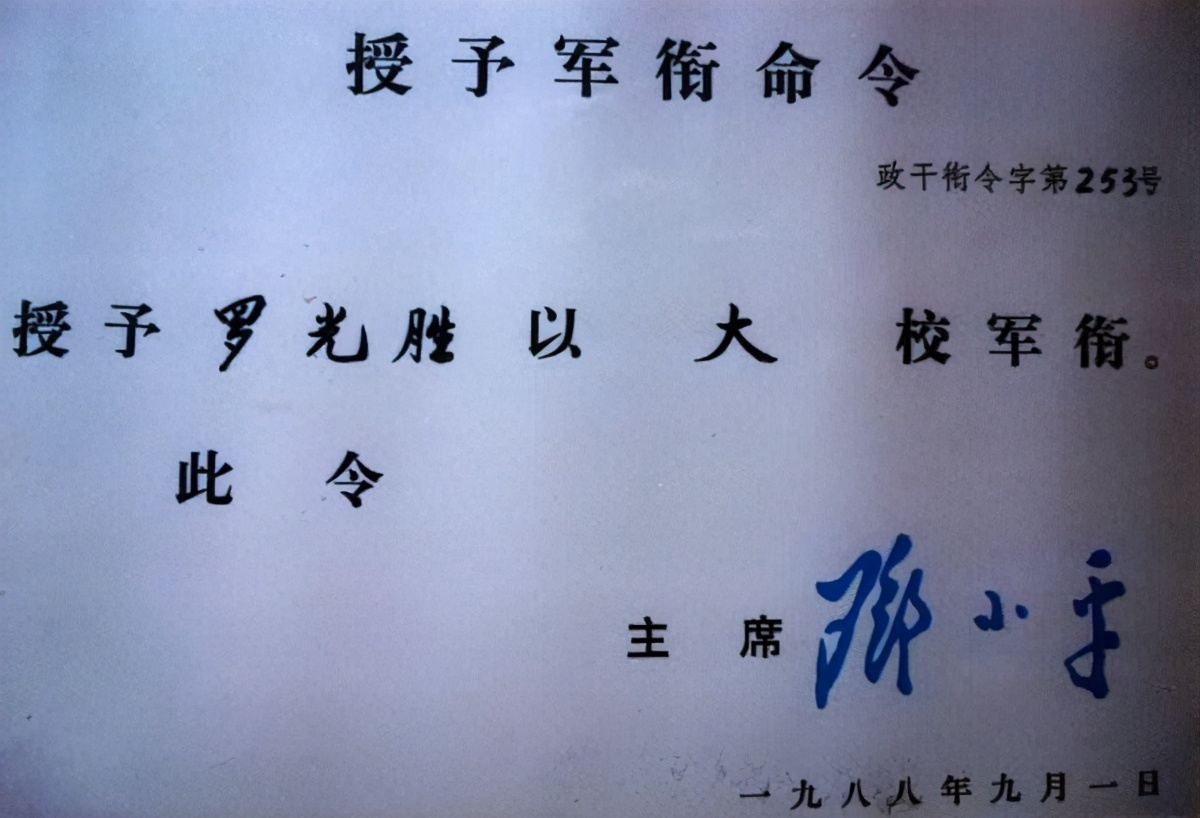 授予军衔命令
政干衔令字第253号
授予罗光胜以 大 校军衔。
此令
主席 邓小平
一九八八年九月一日